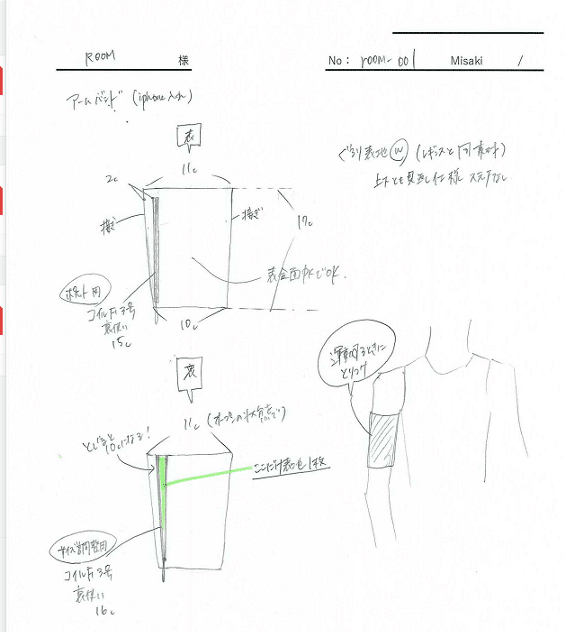 ROOM 様
No: room-001 Misaki /
アームバンド (iphone入れ)
表
11c
ぐるり表地Ⓦ (レギンスと同素材)
上下とも見返し仕様 ステッチなし
2c
接ぎ
接ぎ
17c
表全面PKでOK.
ポケット用
コイルF3号
裏使い
15c
10c
裏
11c (オープンの状態で)
とじると
10cになる!
ここだけ表地1枚
運動するときに
とりつけ
サイズ調整用
コイルF3号
裏使い
16c